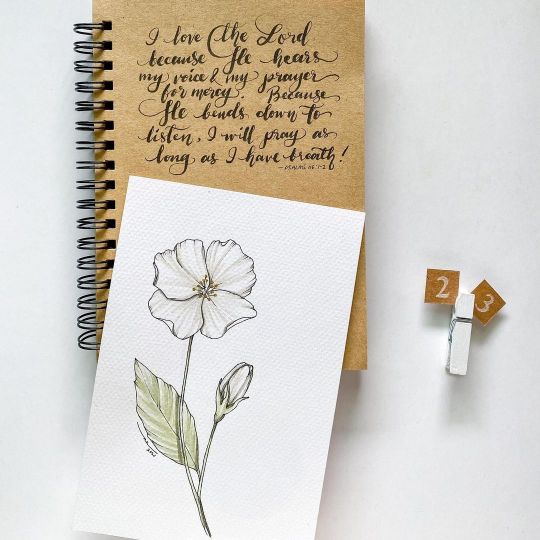 I love the Lord
because He hears
my voice & my prayer
for mercy. Because
He bends down to
listen, I will pray as
long as I have breath!
- PSALM 116:1-2
2 3